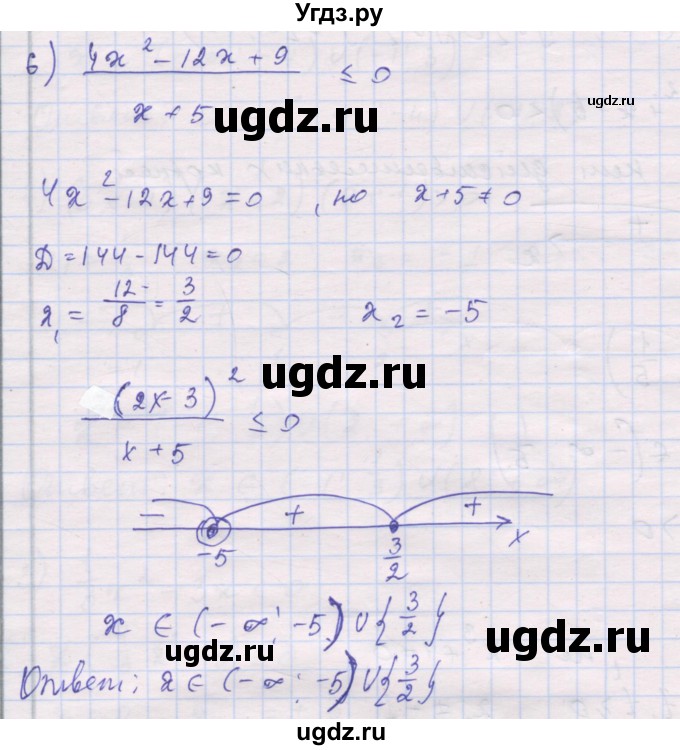 Угдз.ру
6) (4x² - 12x + 9)/(x + 5) ≤ 0
ugdz.ru
ugdz.ru
4x² - 12x + 9 = 0 , но x + 5 ≠ 0
ugdz.ru
Д = 144 - 144 = 0
x₁ = 12/8 = 3/2 x₂ = -5
ugdz.ru
(2x - 3)²/(x + 5) ≤ 0
ugdz.ru
ugdz.ru
- + +
-5 3/2 x
x ∈ (-∞; -5) ∪ {3/2}
ugdz.ru
ugdz.ru
Ответ: x ∈ (-∞; -5) ∪ {3/2}
ugdz.ru